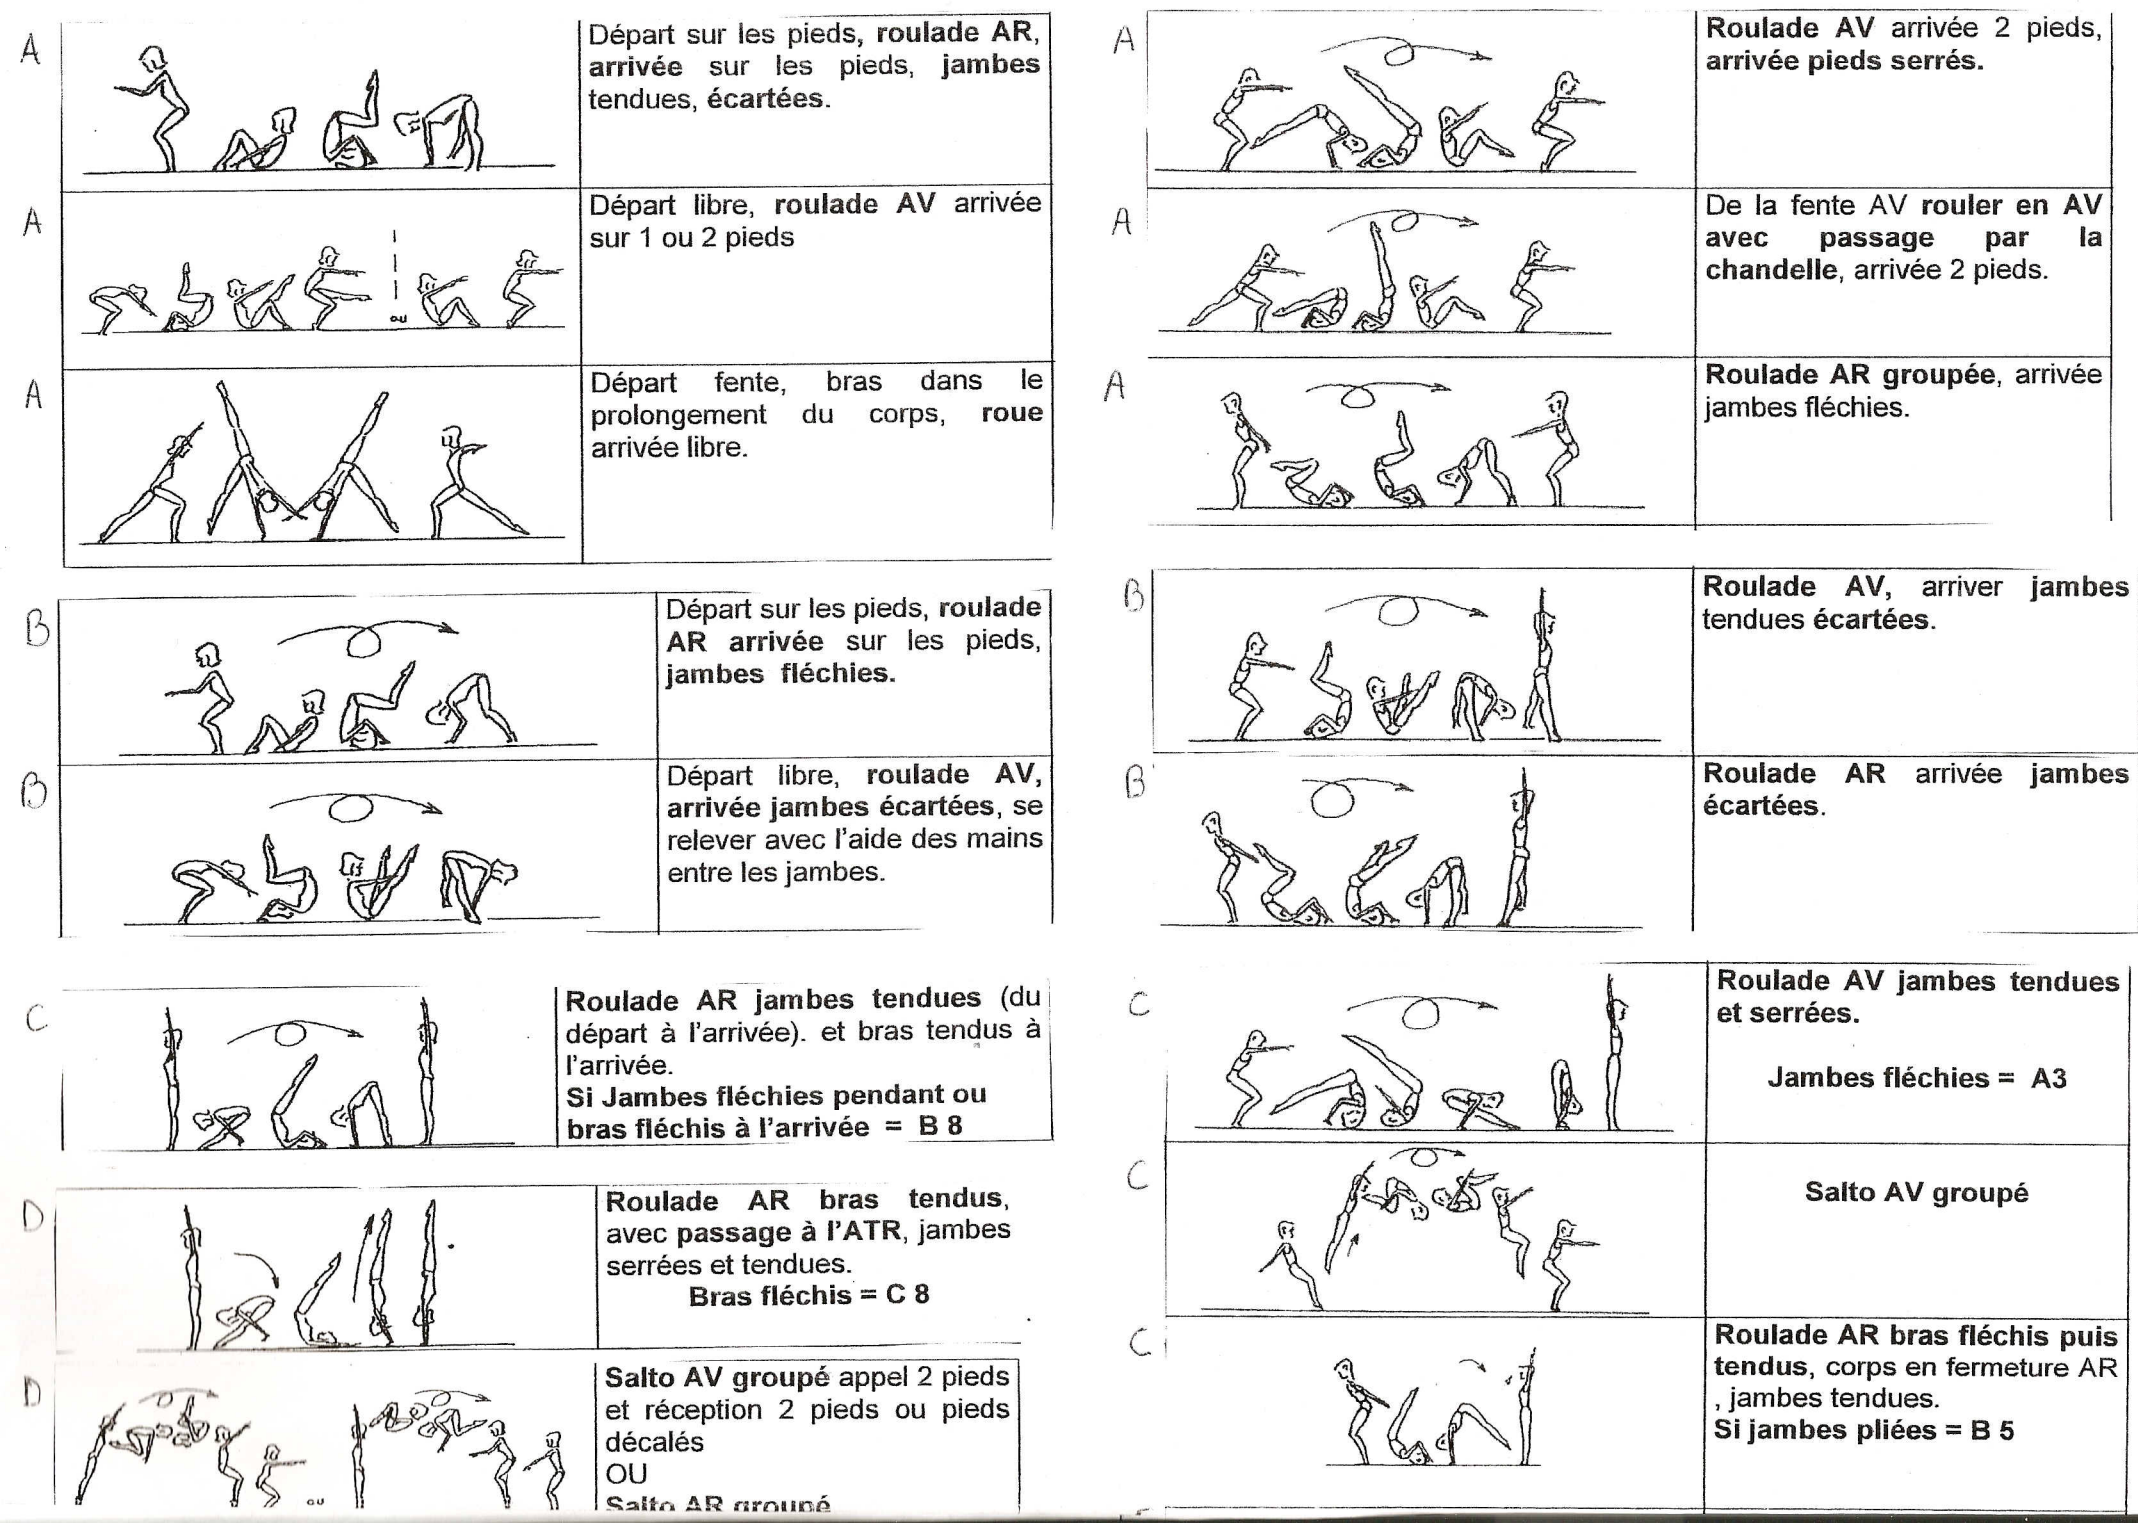 A
Départ sur les pieds, roulade AR,
arrivée sur les pieds, jambes
tendues, écartées.
A
Départ libre, roulade AV arrivée
sur 1 ou 2 pieds
ou
A
Départ fente, bras dans le
prolongement du corps, roue
arrivée libre.
B
Départ sur les pieds, roulade
AR arrivée sur les pieds,
jambes fléchies.
B
Départ libre, roulade AV,
arrivée jambes écartées, se
relever avec l'aide des mains
entre les jambes.
C
Roulade AR jambes tendues (du
départ à l'arrivée). et bras tendus à
l'arrivée.
Si Jambes fléchies pendant ou
bras fléchis à l'arrivée = B 8
D
Roulade AR bras tendus,
avec passage à l'ATR, jambes
serrées et tendues.
Bras fléchis = C 8
D
Salto AV groupé appel 2 pieds
et réception 2 pieds ou pieds
décalés
OU
Salto AR groupé
ou
A
Roulade AV arrivée 2 pieds,
arrivée pieds serrés.
A
De la fente AV rouler en AV
avec passage par la
chandelle, arrivée 2 pieds.
A
Roulade AR groupée, arrivée
jambes fléchies.
B
Roulade AV, arriver jambes
tendues écartées.
B
Roulade AR arrivée jambes
écartées.
C
Roulade AV jambes tendues
et serrées.
Jambes fléchies = A3
C
Salto AV groupé
C
Roulade AR bras fléchis puis
tendus, corps en fermeture AR
, jambes tendues.
Si jambes pliées = B 5